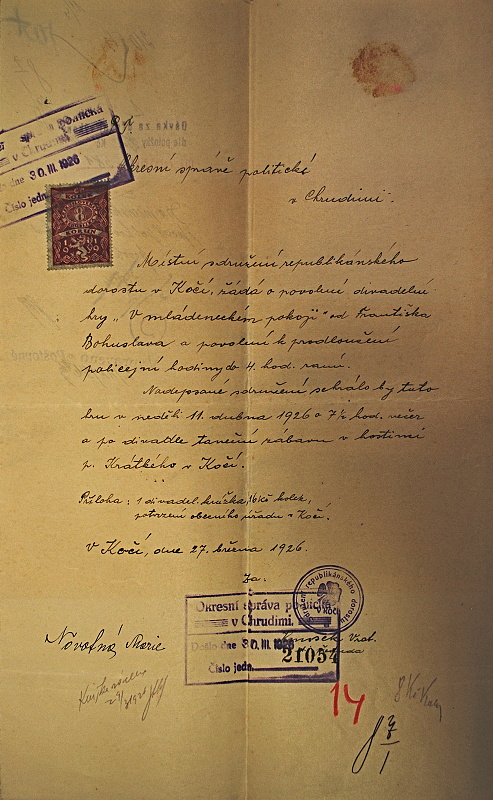 Okresní správě politické
v Chrudimi.
politická
v Chrudimi
dne 30. III. 1926
Číslo jedn.
KORUN
8
KORUN
Místní sdružení republikánského
dorostu v Kočí, žádá o povolení divadelní
hry „V mládeneckém pokoji" od Františka
Bohuslava a povolení k prodloužení
policejní hodiny do 4. hod. ranní.
Nadepsané sdružení sehrálo by tuto
hru v neděli 11. dubna 1926 o 7½ hod. večer
a po divadle taneční zábavu v hostinci
p. Krátkého v Kočí.
Příloha: 1 divadel. knížka, 16 Kč kolek,
potvrzení obecního úřadu v Kočí.
V Kočí, dne 27. března 1926.
Za:
republikánského dorostu
v Kočí
Okresní správa politická
v Chrudimi.
Došlo dne 30. III. 1926
Číslo jedn. 21054
Novotná Marie
14
8 Kč